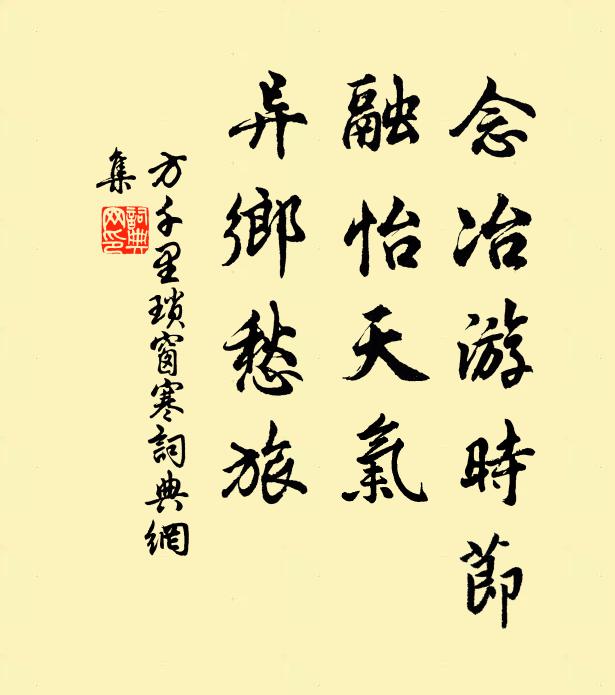 念冶游時節
融怡天氣
异鄉愁旅
方千里瑣窗寒詞典網
集
詞典
网印